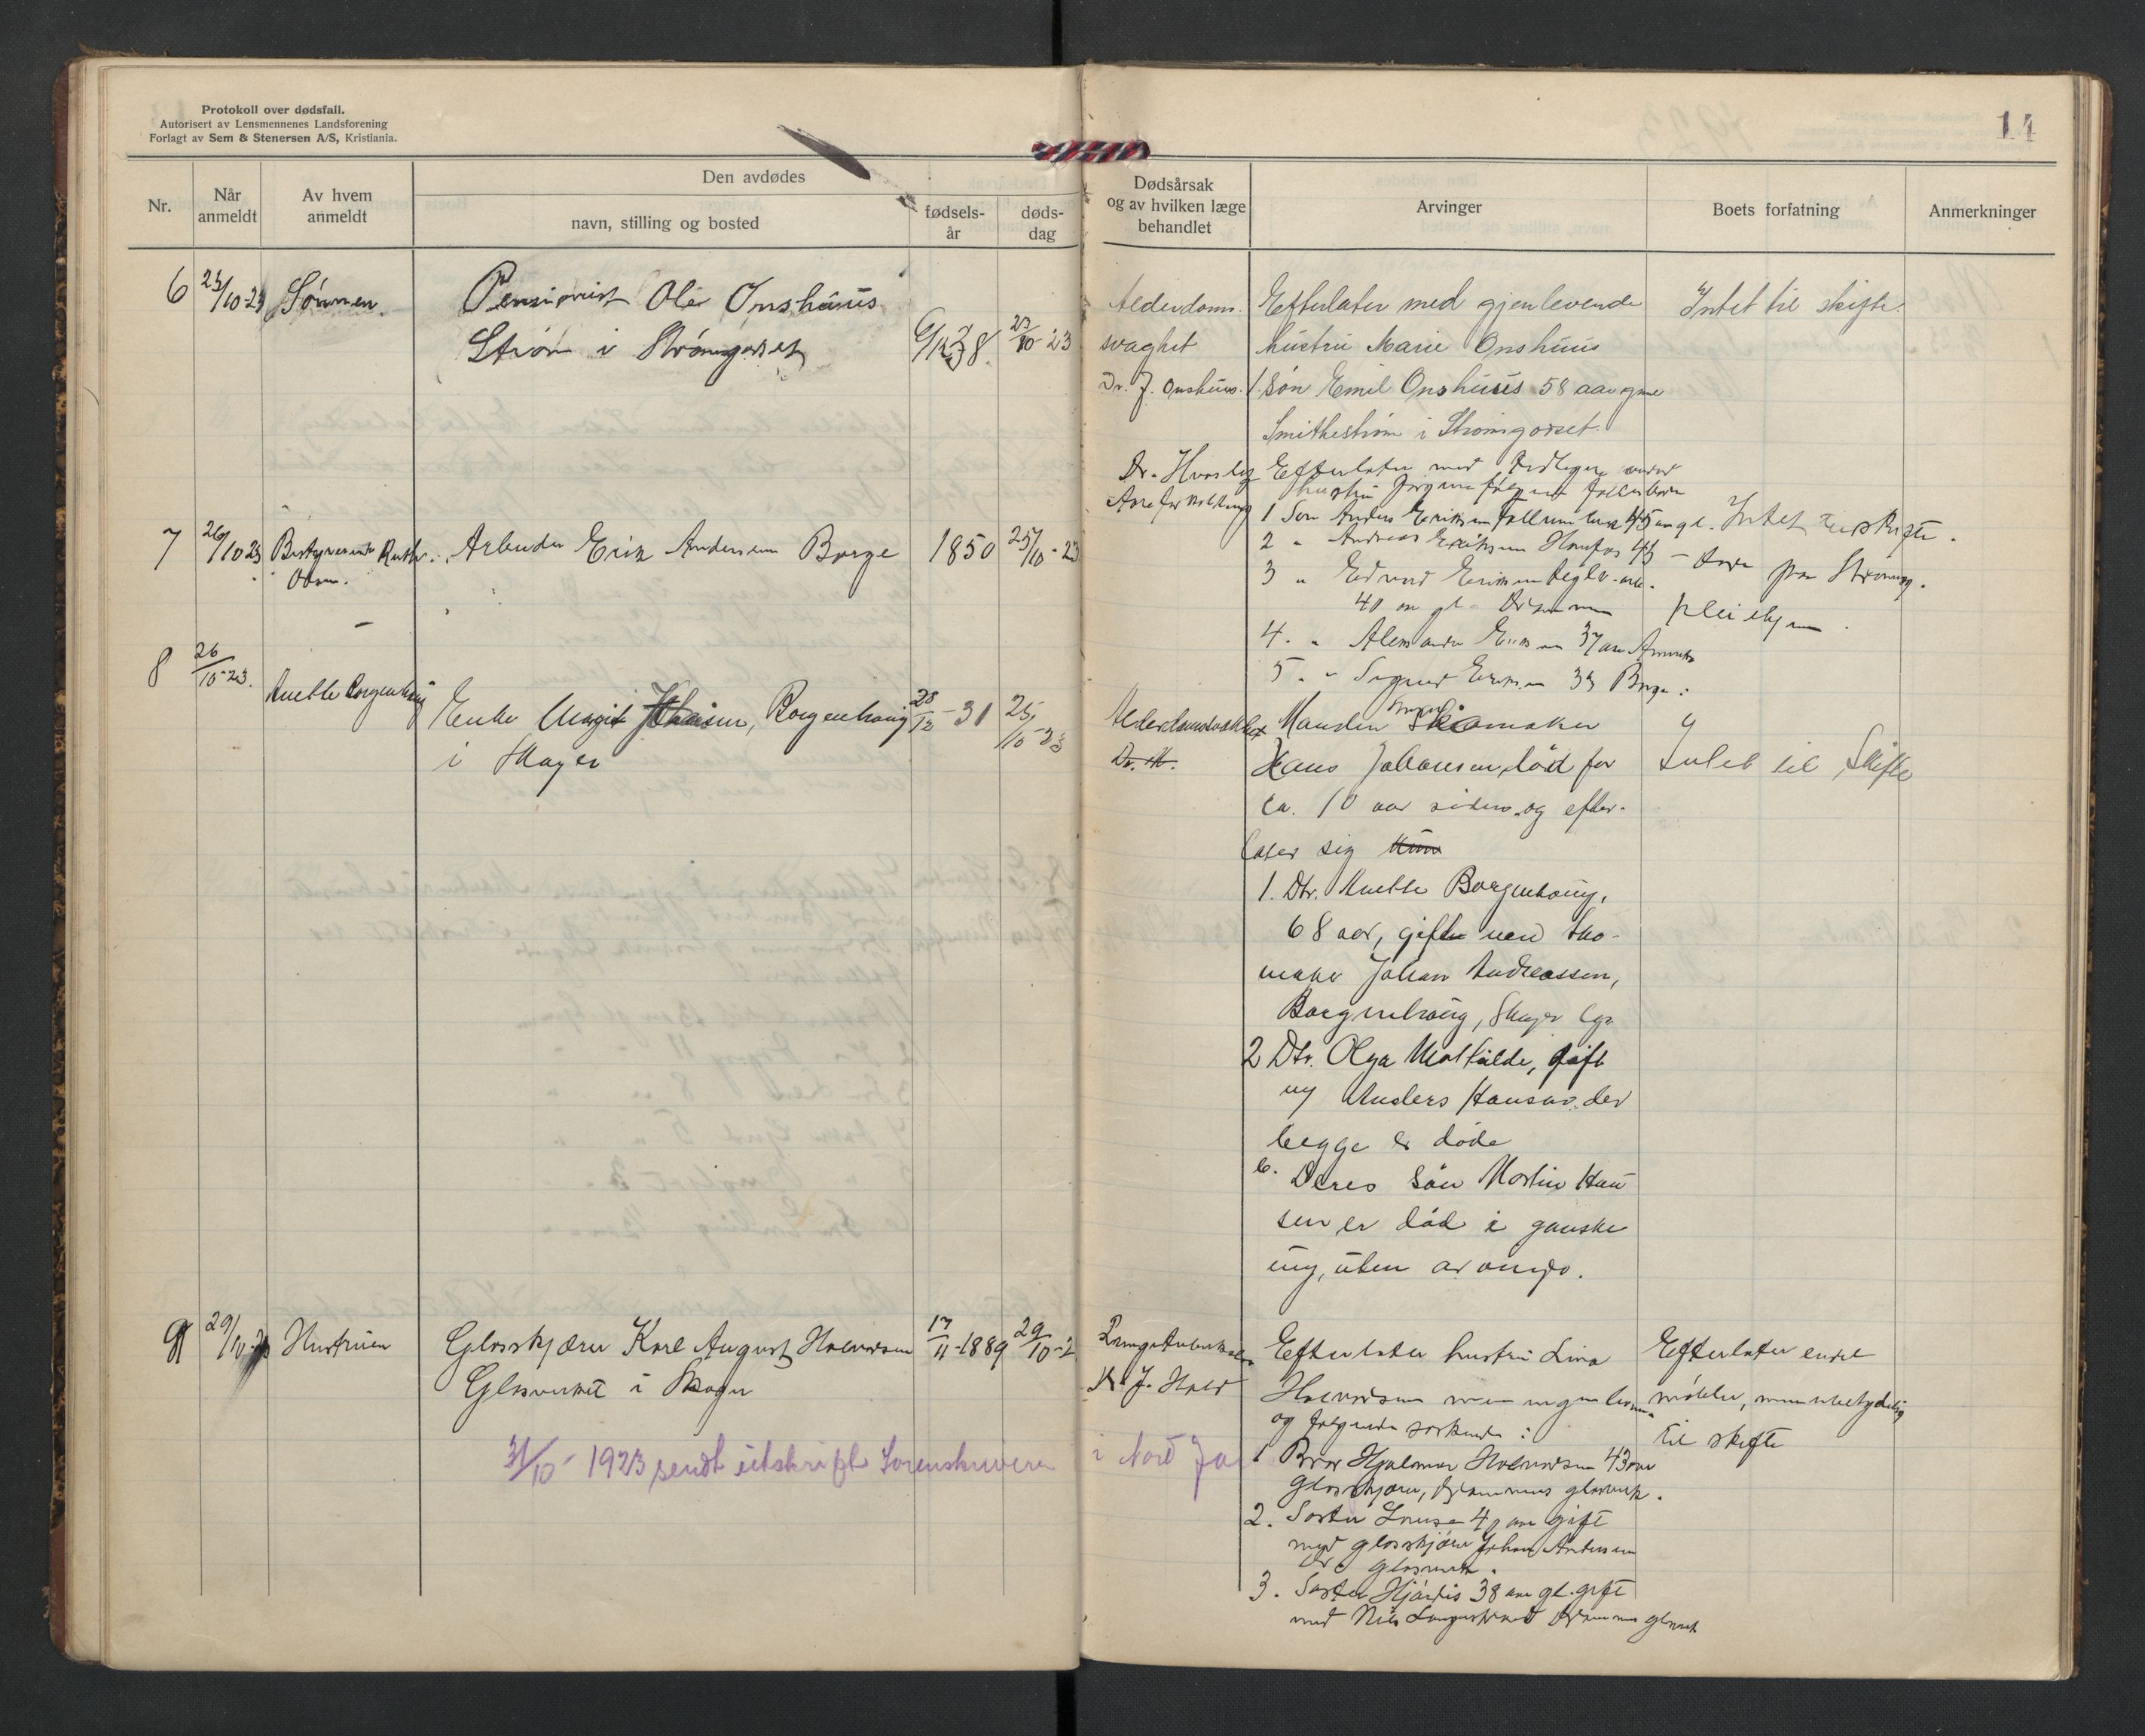 Protokoll over dødsfall.
Autorisert av Lensmennenes Landsforening
Forlagt av Sem & Stenersen A/S, Kristiania.
14
Nr.
Når anmeldt
Av hvem anmeldt
Den avdødes
navn, stilling og bosted
fødsels-år
døds-dag
Dødsårsak
og av hvilken læge
behandlet
Arvinger
Boets forfatning
Anmerkninger
6
Sönnen
Pensionist Ole Onshuus
Ström i Strömsgodset
23/10 23
Alderdoms
svaghet
Dr. J. Onshuus.
Efterlater med gjenlevende
hustru Marie Onshuus
1. Søn Emil Onshuus 58 aar gml
Smitheström i Strömsgodset.
Intet til skifte.
7
26/10 23
Arbeider Erik Andersen Borge
1850
25/10-23
Dr.
Efterlater med
hustru
1 Søn Anders Eriksen 45 aar gl.
2 " Andreas Eriksen 43
3 " Edvard Eriksen
40 aar gl.
4. " Eriksen 37 aar
5. " Sigurd Eriksen 33 Borge.
Intet til skifte.
8
26/10-23.
Anette Borgenhaug
Enke Margit Johansen, Borgenhaug
i Skoger
28/12-31
25/10-23
Alderdomssvakhet
Dr. M.
Manden Skomaker
Hans Johansen död for
ca. 10 aar siden og efter-
later sig
1. Dtr. Anette Borgenhaug,
68 aar, gift med Sko-
maker Johan Andreassen,
Borgenhaug, Skoger
2 Dtr. Olga Mathilde, gift
m/ Anders Hansen der
begge er döde
Deres Sön Martin Han
sen er död i ganske
ung, uten arvinger.
Intet til Skifte
9
29/10-23
Hustruen
Glasskjærer Karl August Halvorsen
Glasverket i Skoger
17/11-1889
29/10-2
Lungetuberkulose
Dr. J. Hald
Efterlater hustru Lina
Halvorsen men ingen
og følgende søskende:
1 Bror Hjalmar Halvorsen 43 aar
glasskjærer, Drammens glasverk.
2. Søster Louise aar gift
med glasskjærer Johan Andersen
Dr glasverk.
3. Søster Hjørdis 38 aar gl. gift
med Nils Drammens glasverk
Efterlater endel
møbler, men ubetydelig
til skifte
31/10 - 1923 sendt utskrift Sorenskriveren i Nord Ja